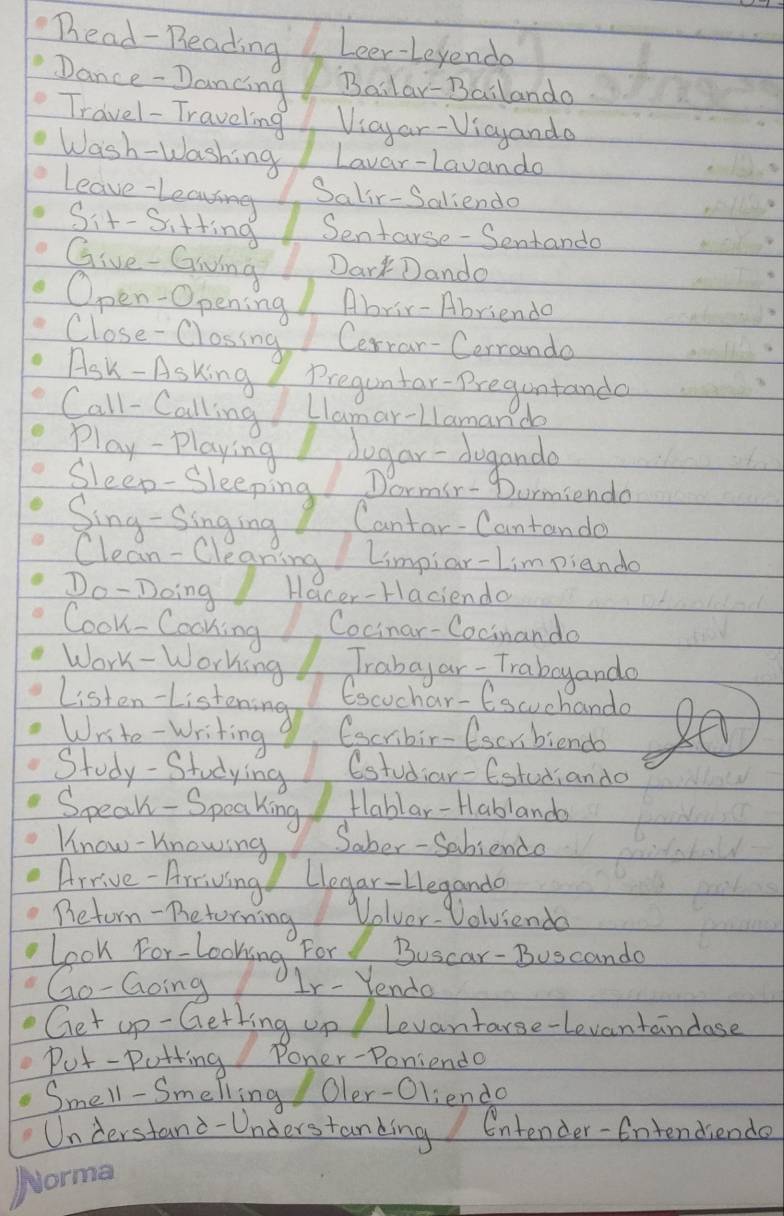 Read - Reading / Leer - Leyendo
Dance - Dancing / Bailar - Bailando
Travel - Traveling / Viajar - Viajando
Wash - Washing / Lavar - Lavando
Leave - Leaving / Salir - Saliendo
Sit - Sitting / Sentarse - Sentando
Give - Giving / Dar - Dando
Open - Opening / Abrir - Abriendo
Close - Closing / Cerrar - Cerrando
Ask - Asking / Preguntar - Preguntando
Call - Calling / Llamar - Llamando
Play - Playing / Jugar - Jugando
Sleep - Sleeping / Dormir - Durmiendo
Sing - Singing / Cantar - Cantando
Clean - Cleaning / Limpiar - Limpiando
Do - Doing / Hacer - Haciendo
Cook - Cooking / Cocinar - Cocinando
Work - Working / Trabajar - Trabajando
Listen - Listening / Escuchar - Escuchando
Write - Writing / Escribir - Escribiendo
Study - Studying / Estudiar - Estudiando
Speak - Speaking / Hablar - Hablando
Know - Knowing / Saber - Sabiendo
Arrive - Arriving / Llegar - Llegando
Return - Returning / Volver - Volviendo
Look For - Looking For / Buscar - Buscando
Go - Going / Ir - Yendo
Get up - Getting up / Levantarse - Levantándose
Put - Putting / Poner - Poniendo
Smell - Smelling / Oler - Oliendo
Understand - Understanding / Entender - Entendiendo
Norma